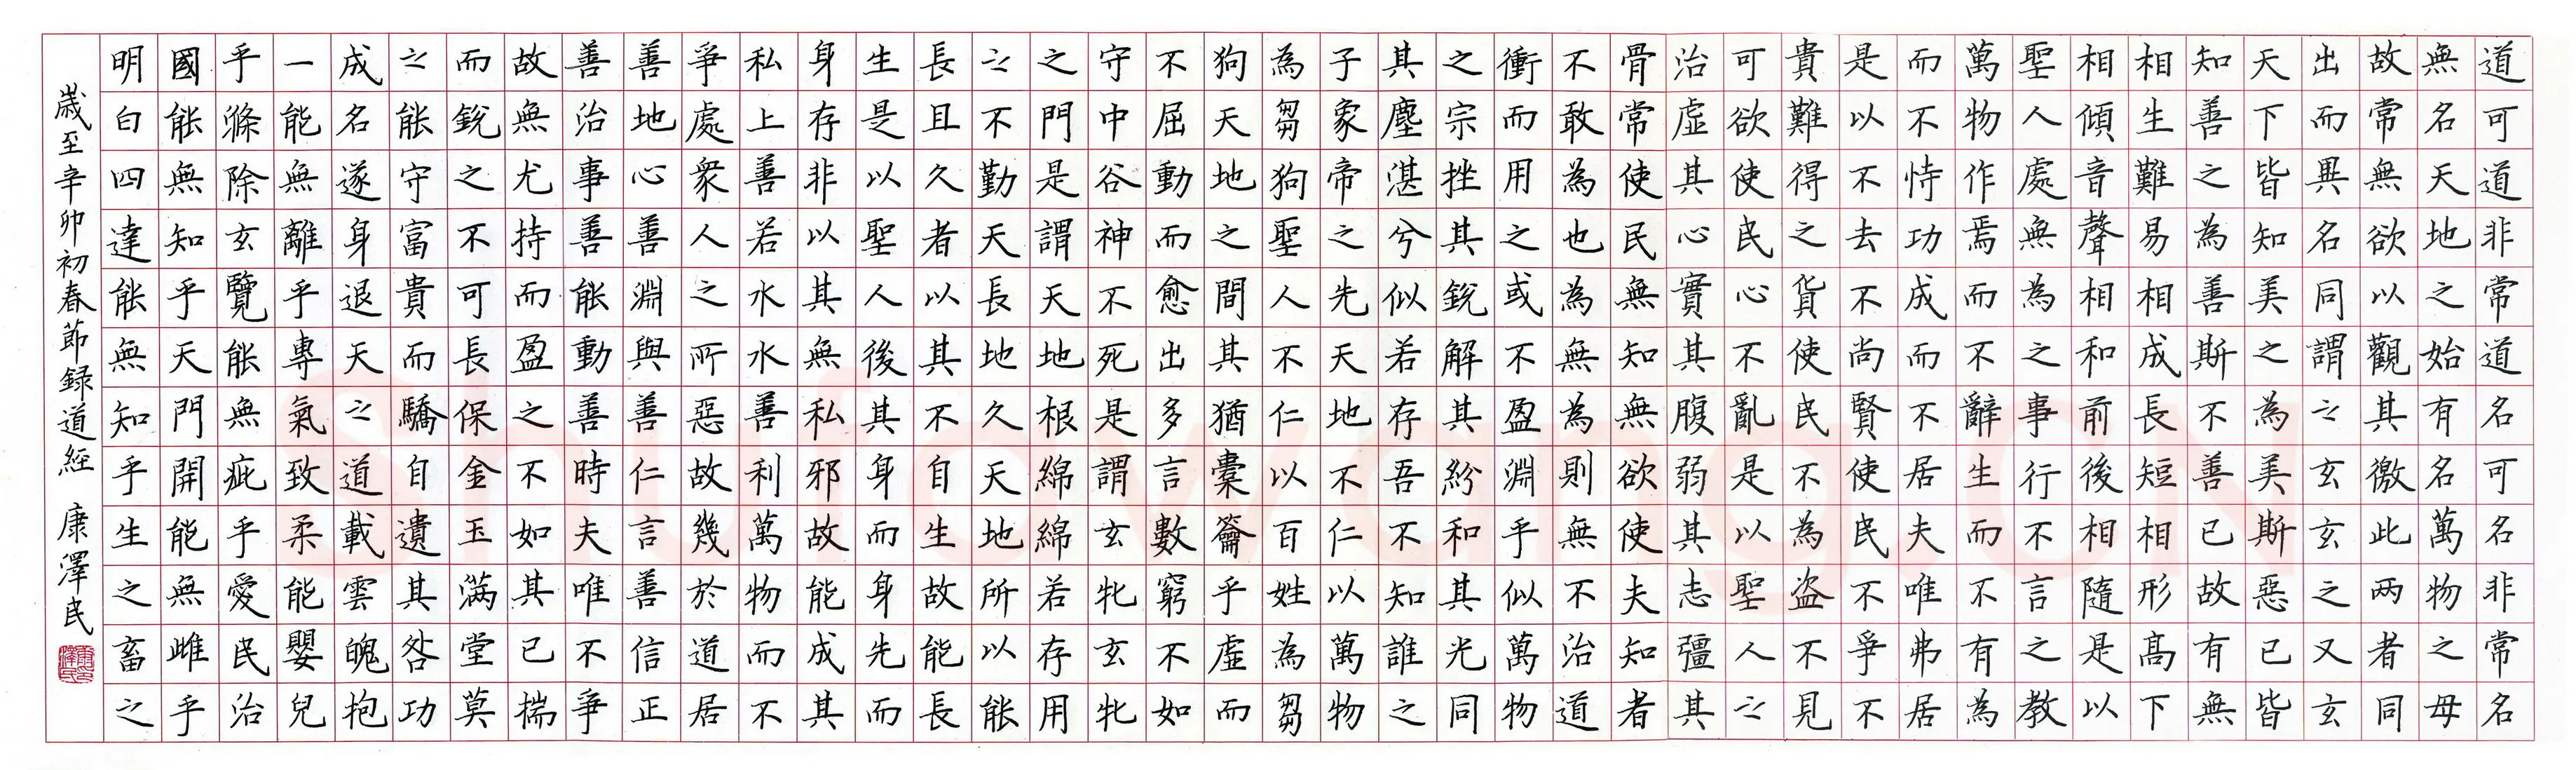 道可道非常道名可名非常名
無名天地之始有名萬物之母
故常無欲以觀其徼此两者同
出而異名同謂之玄玄之又玄
天下皆知美之為美斯惡已皆
知善之為善斯不善已故有無
相生難易相成長短相形高下
相傾音聲相和前後相隨是以
聖人處無為之事行不言之教
萬物作焉而不辭生而不有為
而不恃功成而不居夫唯弗居
是以不去不尚賢使民不爭不
貴難得之貨使民不為盗不見
可欲使民心不亂是以聖人之
治虛其心實其腹弱其志彊其
骨常使民無知無欲使夫知者
不敢為也為無為則無不治道
衝而用之或不盈淵乎似萬物
之宗挫其銳解其紛和其光同
其塵湛兮似若存吾不知誰之
子象帝之先天地不仁以萬物
為芻狗聖人不仁以百姓為芻
狗天地之間其猶橐籥乎虛而
不屈動而愈出多言數窮不如
守中谷神不死是謂玄牝玄牝
之門是謂天地根綿綿若存用
之不勤天長地久天地所以能
長且久者以其不自生故能長
生是以聖人後其身而身先而
身存非以其無私邪故能成其
私上善若水水善利萬物而不
爭處衆人之所惡故幾於道居
善地心善淵與善仁言善信正
善治事善能動善時夫唯不爭
故無尤持而盈之不如其已揣
而銳之不可長保金玉滿堂莫
之能守富貴而驕自遺其咎功
成名遂身退天之道載雲魄抱
一能無離乎專氣致柔能嬰兒
乎滌除玄覽能無疵乎愛民治
國能無知乎天門開能無雌乎
明白四達能無知乎生之畜之
歲至辛卯初春節録道經 康澤民
Shufawang.CN